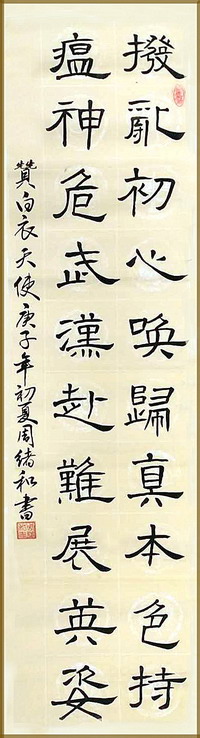 撥亂初心喚歸真本色持
瘟神危武漢赴難展英姿
贊白衣天使庚子年初夏周緒和書